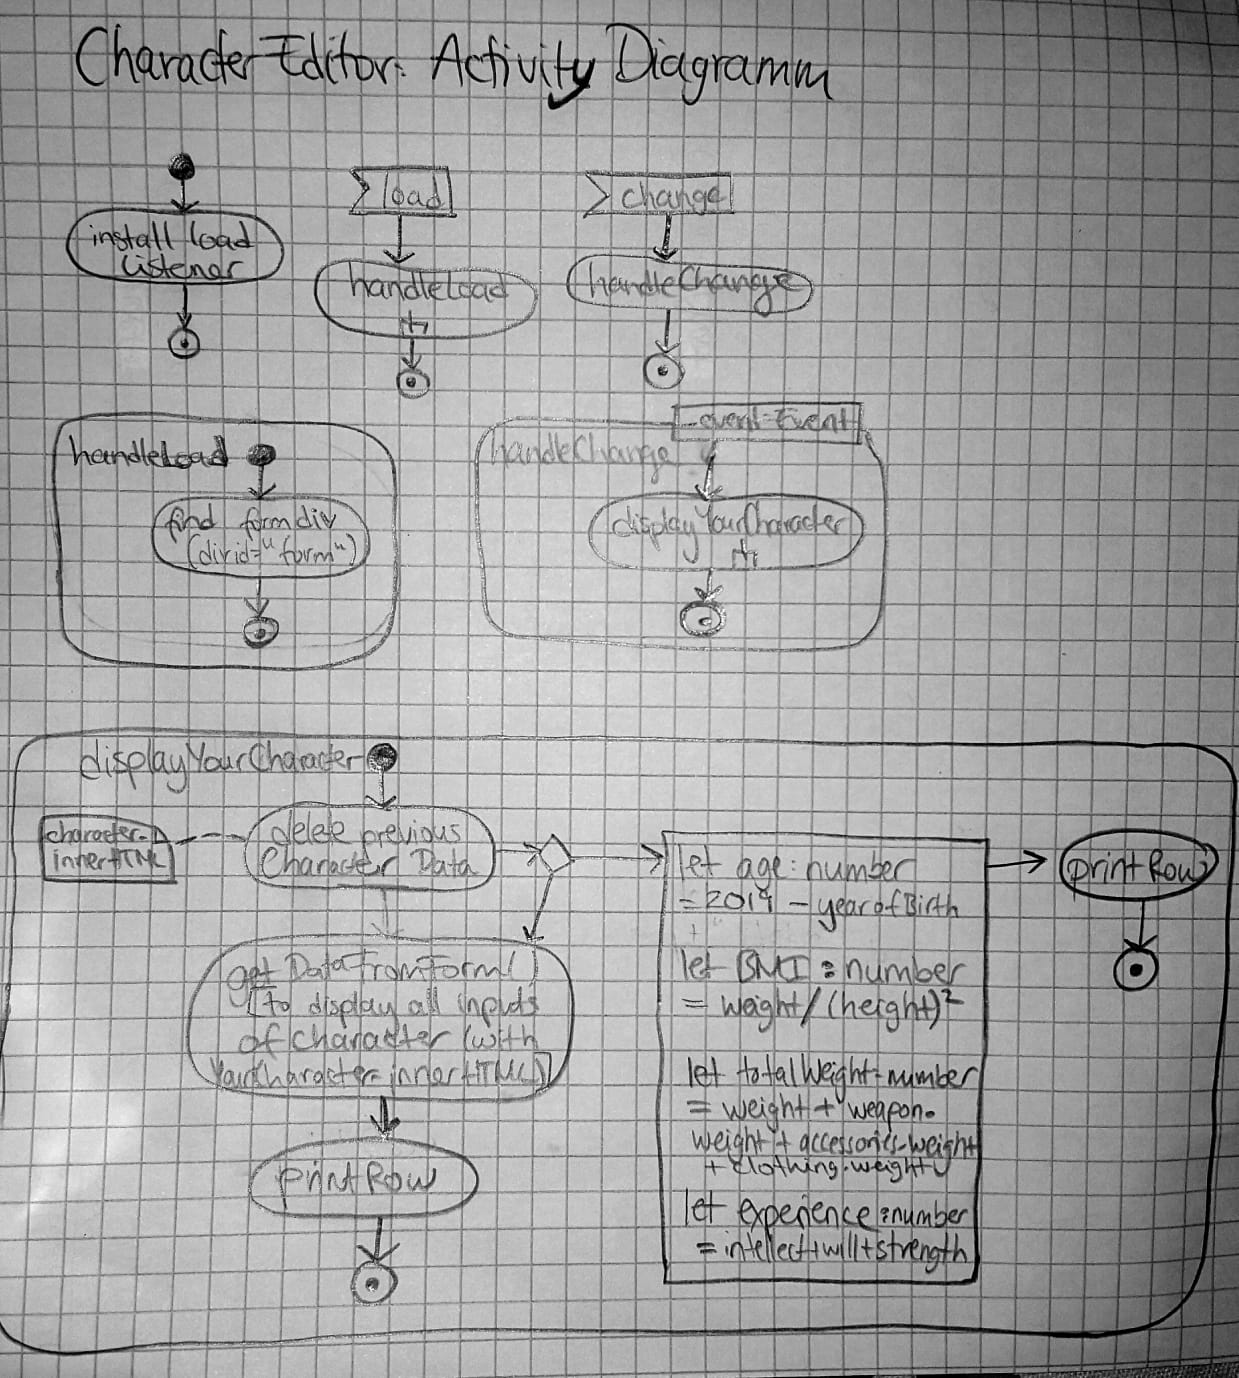 Character Editor: Activity Diagramm
install load
listener
load
handleLoad
change
handleChange
handleLoad
find formdiv
(div id="form")
_event: Event
handleChange
displayYourCharacter
displayYourCharacter
character.
innerHTML
delete previous
Character Data
getDataFromForm()
(to display all inputs
of character (with
YourCharacter.innerHTML)
printRow
let age: number
= 2019 - yearofBirth
let BMI: number
= weight/(height)²
let totalWeight: number
= weight + weapon.
weight + accessories.weight
+ clothing.weight
let experience: number
= intellect+will+strength
printRow